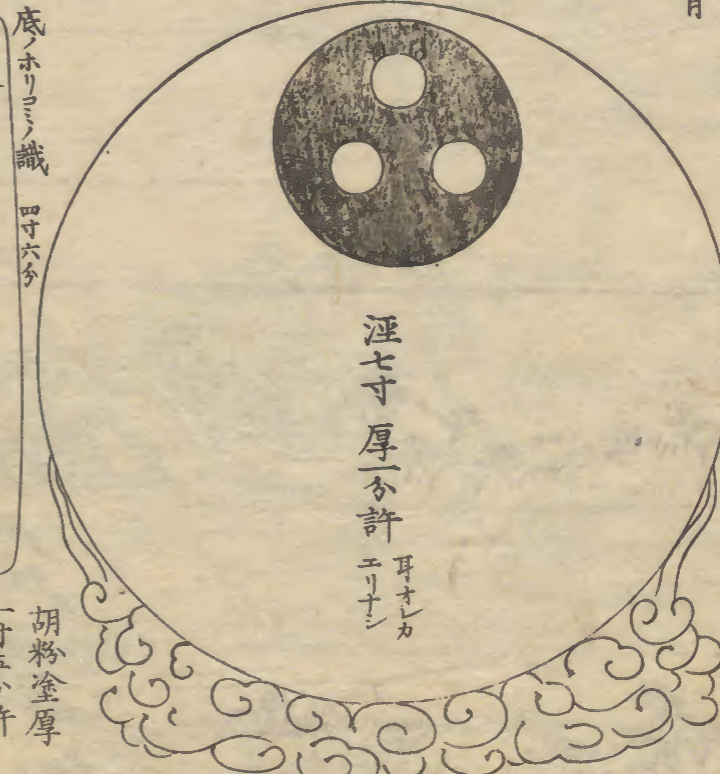 月
涇七寸 厚一分許
耳オレカ
エリナシ
底ノホリコミノ識 四寸六分
胡粉塗厚
一寸五分許